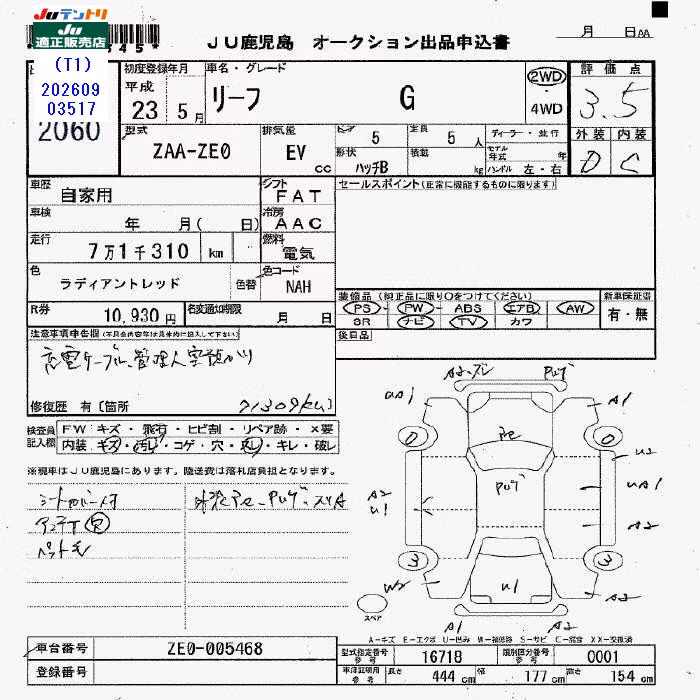 JUテントリ
JU
適正販売店
JU鹿児島 オークション出品申込書
月 日 AA
(T1)
202609
03517
2060
初度登録年月
平成
23 5月
車名・グレード
リーフ G
2WD
4WD
評価点
3.5
外装 内装
D C
型式
ZAA-ZE0
排気量
EV
cc
ドア
5
定員
5 人
形状
ハッチB
積載
kg
ディーラー・並行
モデル年式 年
ハンドル 左・右
車歴
自家用
シフト
FAT
車検
年 月( 日)
冷房
AAC
走行
7万1千310 km
燃料
電気
色
ラディアントレッド
色替
色コード
NAH
R券
10,930円
名変通知期限
月 日
セールスポイント(正常に機能するものに限ります)
装備品(純正品に限り○をつけてください)
PS PW ABS エアB AW
SR ナビ TV カワ
新車保証書
有・無
後日品
注意事項申告欄(不具合内容等は具体的に記入して下さい)
充電ケーブル、管理人室預かり
修復歴 有〔箇所
71309km〕
検査員
記入欄
FW キズ・飛石・ヒビ割・リペア跡・×要
内装 キズ・汚レ・コゲ・穴・欠レ・キレ・破レ
※現車はJU鹿児島にあります。陸送費は落札店負担となります。
シートカバー付
ペット毛
A2
U1
UA1
A1
0
0
U2
UA1
A2
A2
U1
3
3
W2
U1
A2
A1
A2
スペア
A-キズ E-エクボ U-凹み W-補修跡 S-サビ C-腐食 XX-交換済
車台番号
ZE0-005468
登録番号
型式指定番号
参考
16718
類別区分番号
参考
0001
車体寸法
参考
長さ
444 cm
幅
177 cm
高さ
154 cm